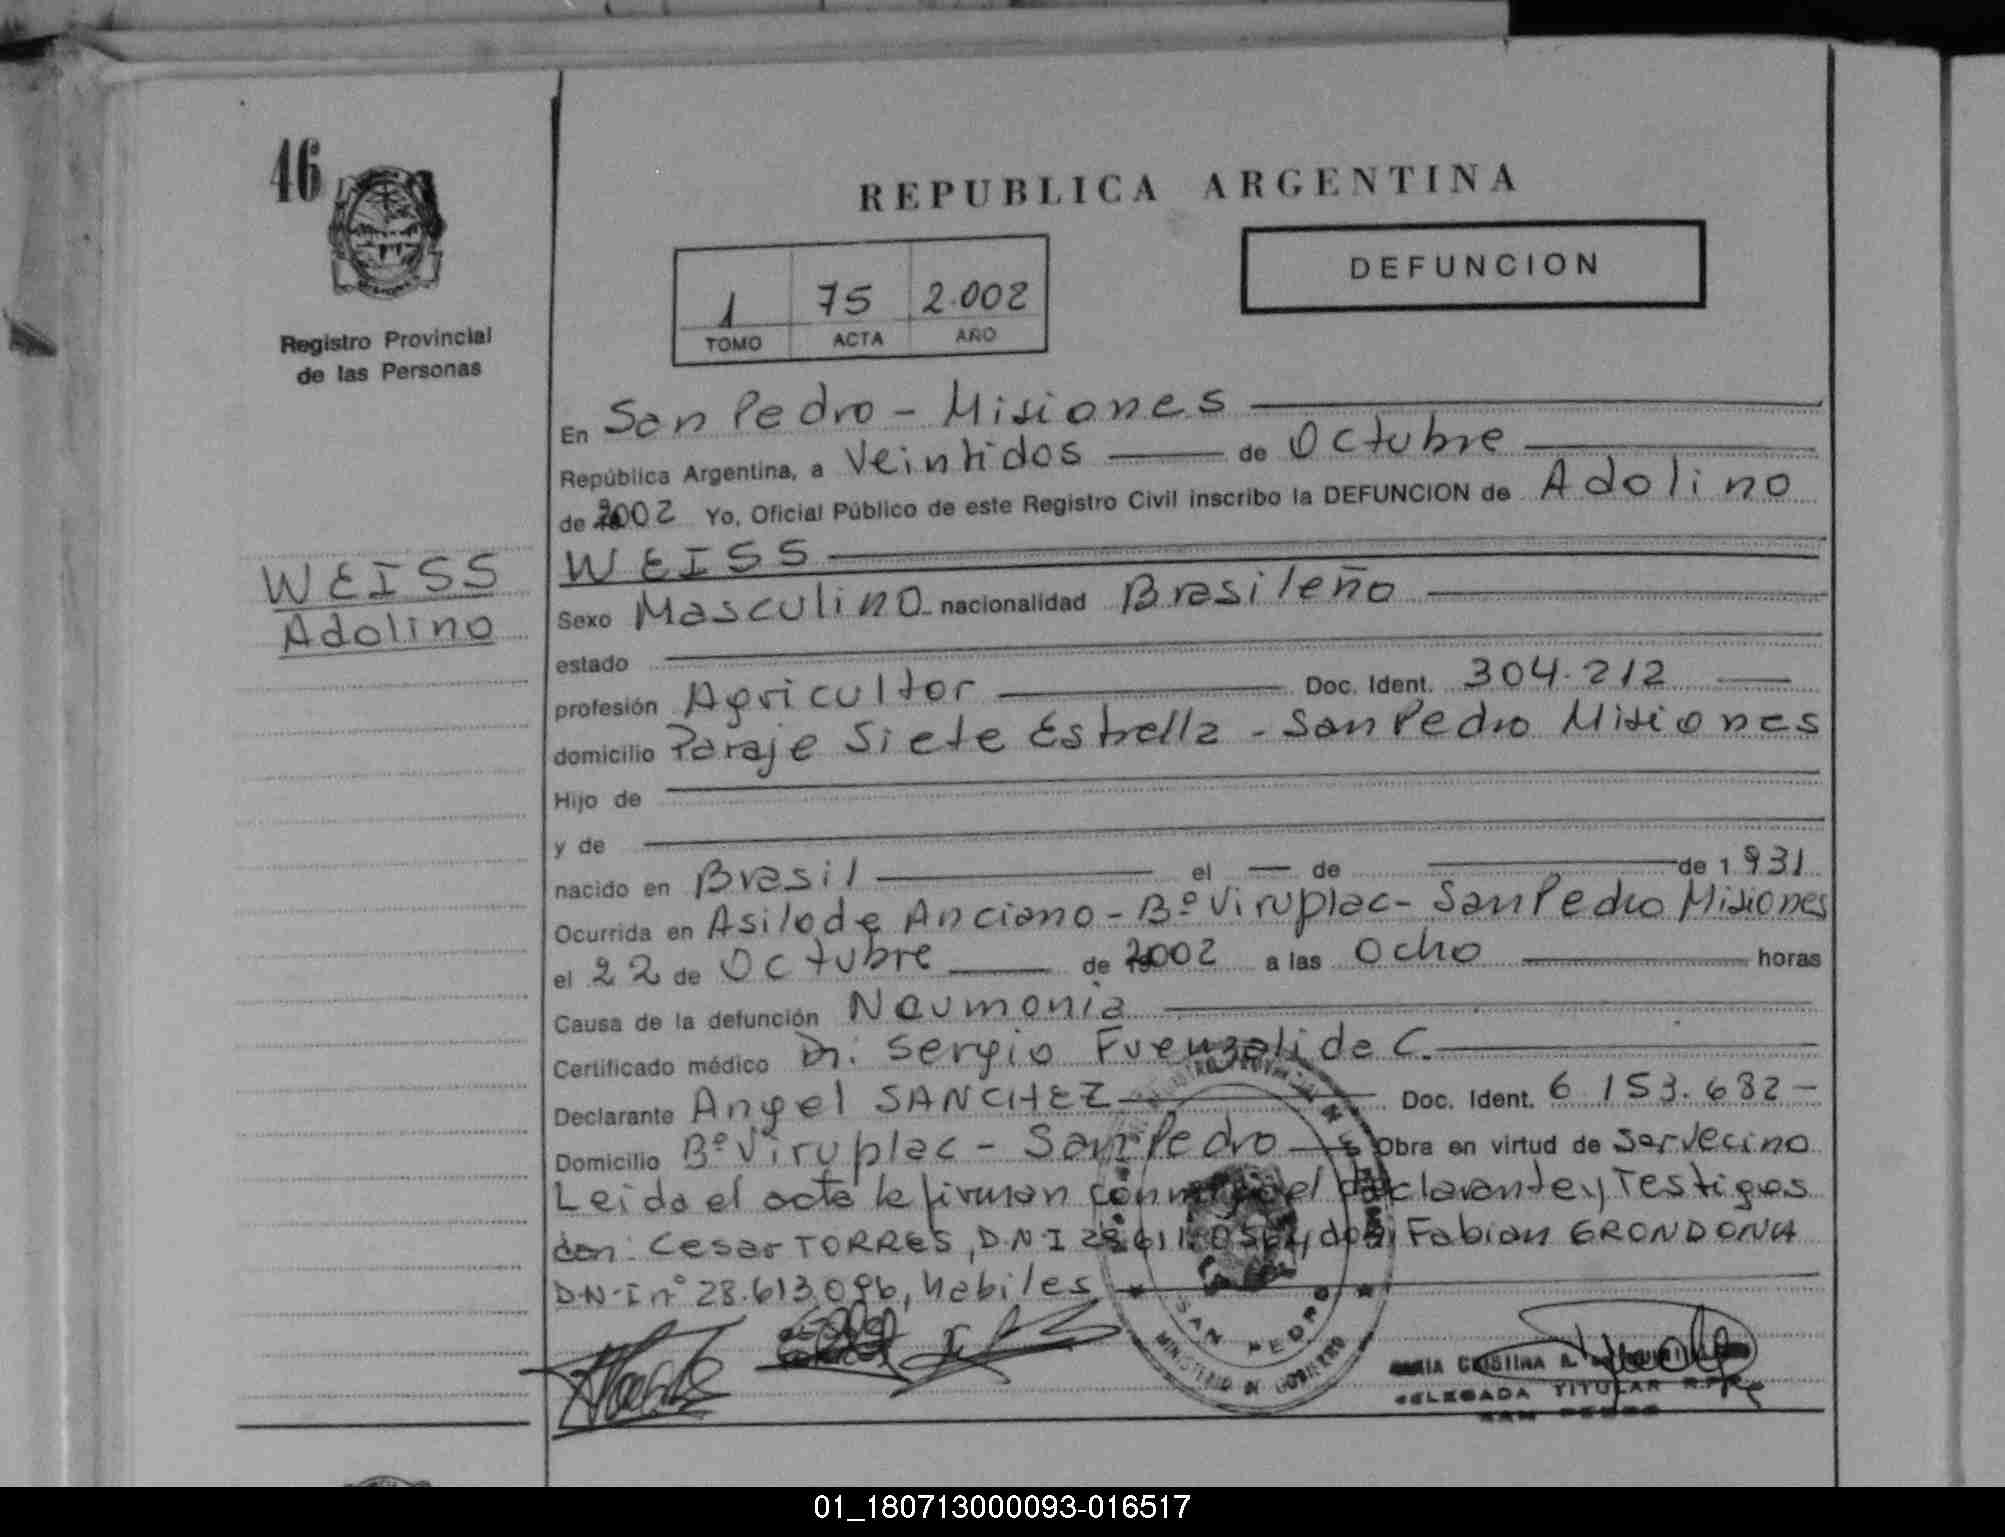 46
REPUBLICA ARGENTINA
DEFUNCION
1 75 2.002
TOMO ACTA AÑO
Registro Provincial
de las Personas
En San Pedro - Misiones
República Argentina, a Veintidos de Octubre
de 2002 Yo, Oficial Público de este Registro Civil inscribo la DEFUNCION de Adolino
WEISS
WEISS
Adolino
Sexo Masculino nacionalidad Brasileño
estado
profesión Agricultor Doc. Ident. 304.212
domicilio Paraje Siete Estrella - San Pedro Misiones
Hijo de
y de
nacido en Brasil el de de 1931
Ocurrida en Asilo de Anciano - Bº Viruplac - San Pedro Misiones
el 22 de Octubre de 2002 a las Ocho horas
Causa de la defunción Neumonia
Certificado médico Dr. Sergio Fuenzalida C.
Declarante Angel SANCHEZ Doc. Ident. 6.153.682
Domicilio Bº Viruplac - San Pedro Obra en virtud de ser vecino
Leida el acta la firman conmigo el declarante y Testigos
don: Cesar TORRES, D.N.I don Fabian GRONDONA
D.N.I nº 28.613.096, habiles
SAN PEDRO
MINISTERIO DE GOBIERNO
MARIA CRISTINA
DELEGADA TITULAR
SAN PEDRO
01_180713000093-016517